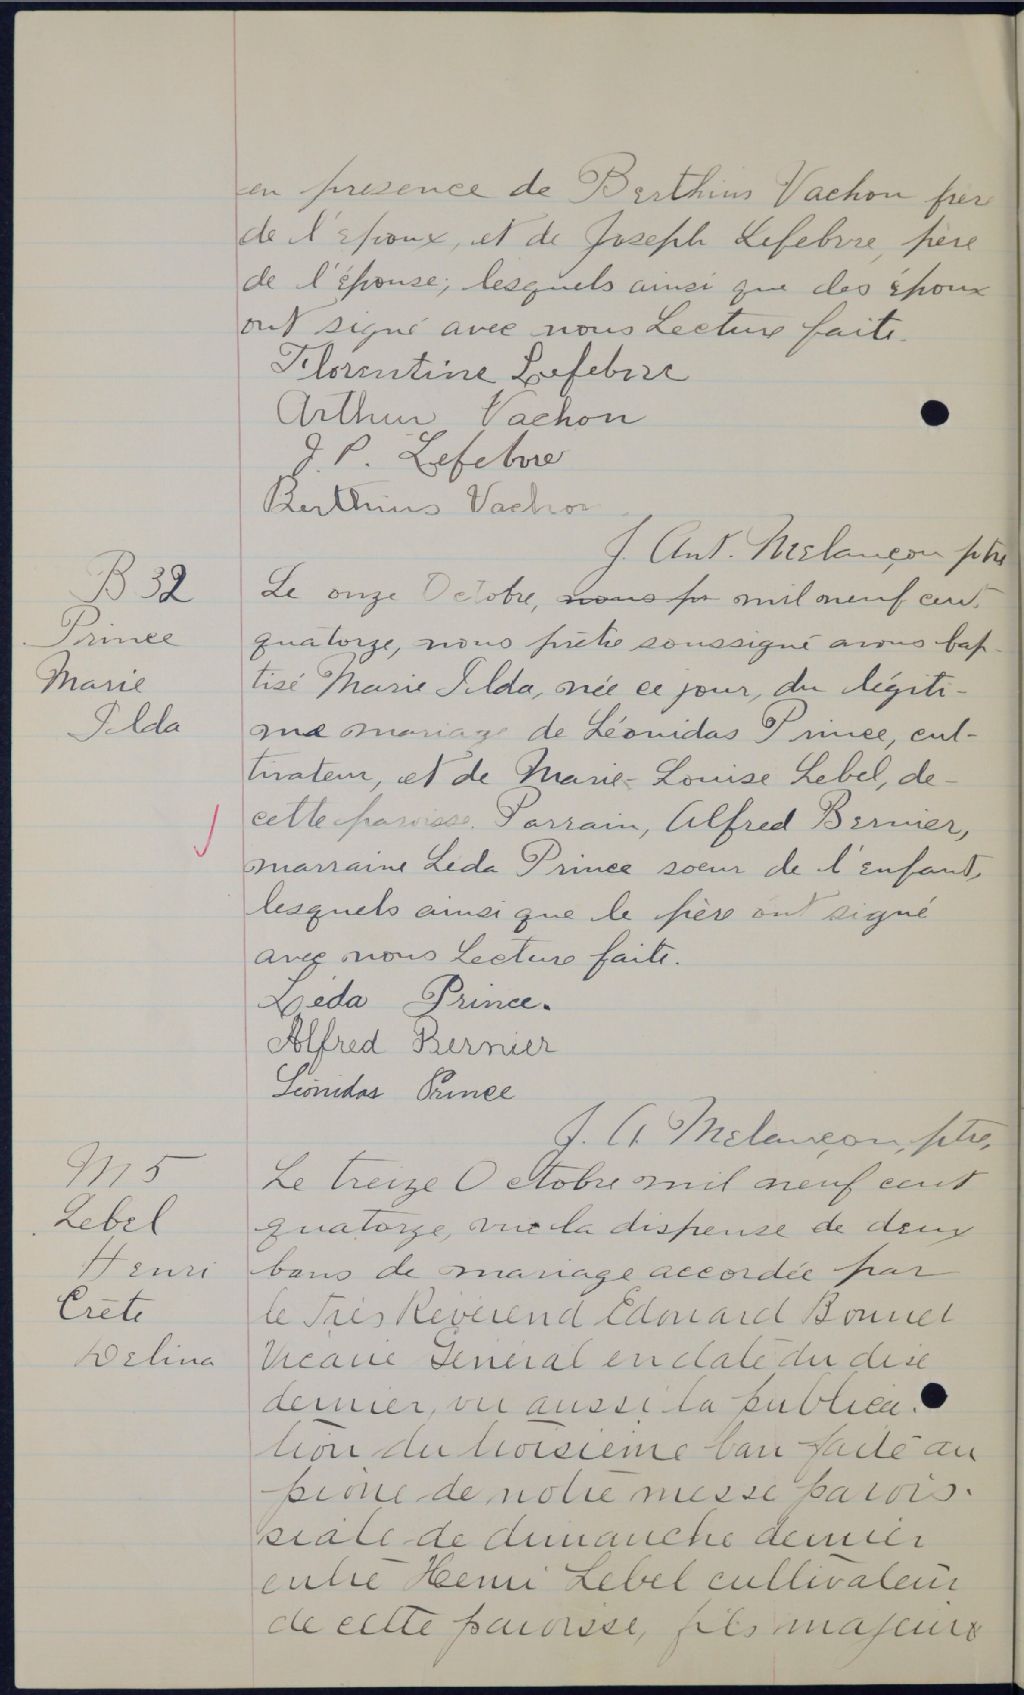 en presence de Berthius Vachon frère
de l'époux, et de Joseph Lefebvre, père
de l'épouse; lesquels ainsi que des époux
ont signé avec nous Lecture faite.
Florentine Lefebvre
Arthur Vachon
J. P. Lefebvre
Berthius Vachon
J. Ant. Melançon ptre
B 32
Prince
Marie
Ilda
Le onze Octobre, nous pr mil neuf cent,
quatorze, nous prêtre soussigné avons bap-
tisé Marie Ilda, née ce jour, du légiti-
me mariage de Léonidas Prince, cul-
tivateur, et de Marie-Louise Lebel, de-
cette paroisse. Parrain, Alfred Bernier,
marraine Léda Prince soeur de l'enfant,
lesquels ainsi que le père ont signé
avec nous Lecture faite.
Léda Prince.
Alfred Bernier
Léonidas Prince
J. A Melançon, ptre,
M 5
Lebel
Henri
Crète
Délina
Le treize Octobre mil neuf cent
quatorze, vu la dispense de deux
bans de mariage accordée par
le Très Révérend Edouard Bonnet
Vicaire Général en date du dix
dernier, vu aussi la publica-
tion du troisième ban faite au
prône de notre messe parois-
siale de dimanche dernier
entre Henri Lebel cultivateur
de cette paroisse, fils majeur